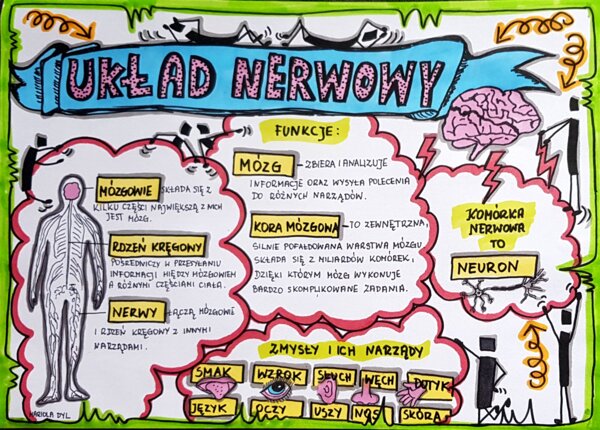 UKŁAD NERWOWY
MÓZGOWIE SKŁADA SIĘ Z
KILKU CZĘŚCI NAJWIĘKSZĄ Z NICH
JEST MÓZG.
RDZEŃ KRĘGOWY
POŚREDNICZY W PRZESYŁANIU
INFORMACJI MIĘDZY MÓZGOWIEM
A RÓŻNYMI CZĘŚCIAMI CIAŁA.
NERWY ŁĄCZĄ MÓZGOWIE
I RDZEŃ KRĘGOWY Z INNYMI
NARZĄDAMI.
MARIOLA DYL
FUNKCJE:
MÓZG - ZBIERA I ANALIZUJE
INFORMACJE ORAZ WYSYŁA POLECENIA
DO RÓŻNYCH NARZĄDÓW.
KORA MÓZGOWA - TO ZEWNĘTRZNA,
SILNIE POFAŁDOWANA WARSTWA MÓZGU
SKŁADA SIĘ Z MILIARDÓW KOMÓREK,
DZIĘKI KTÓRYM MÓZG WYKONUJE
BARDZO SKOMPLIKOWANE ZADANIA.
KOMÓRKA
NERWOWA
TO
NEURON
ZMYSŁY I ICH NARZĄDY
SMAK WZROK SŁUCH WĘCH DOTYK
JĘZYK OCZY USZY NOS SKÓRA